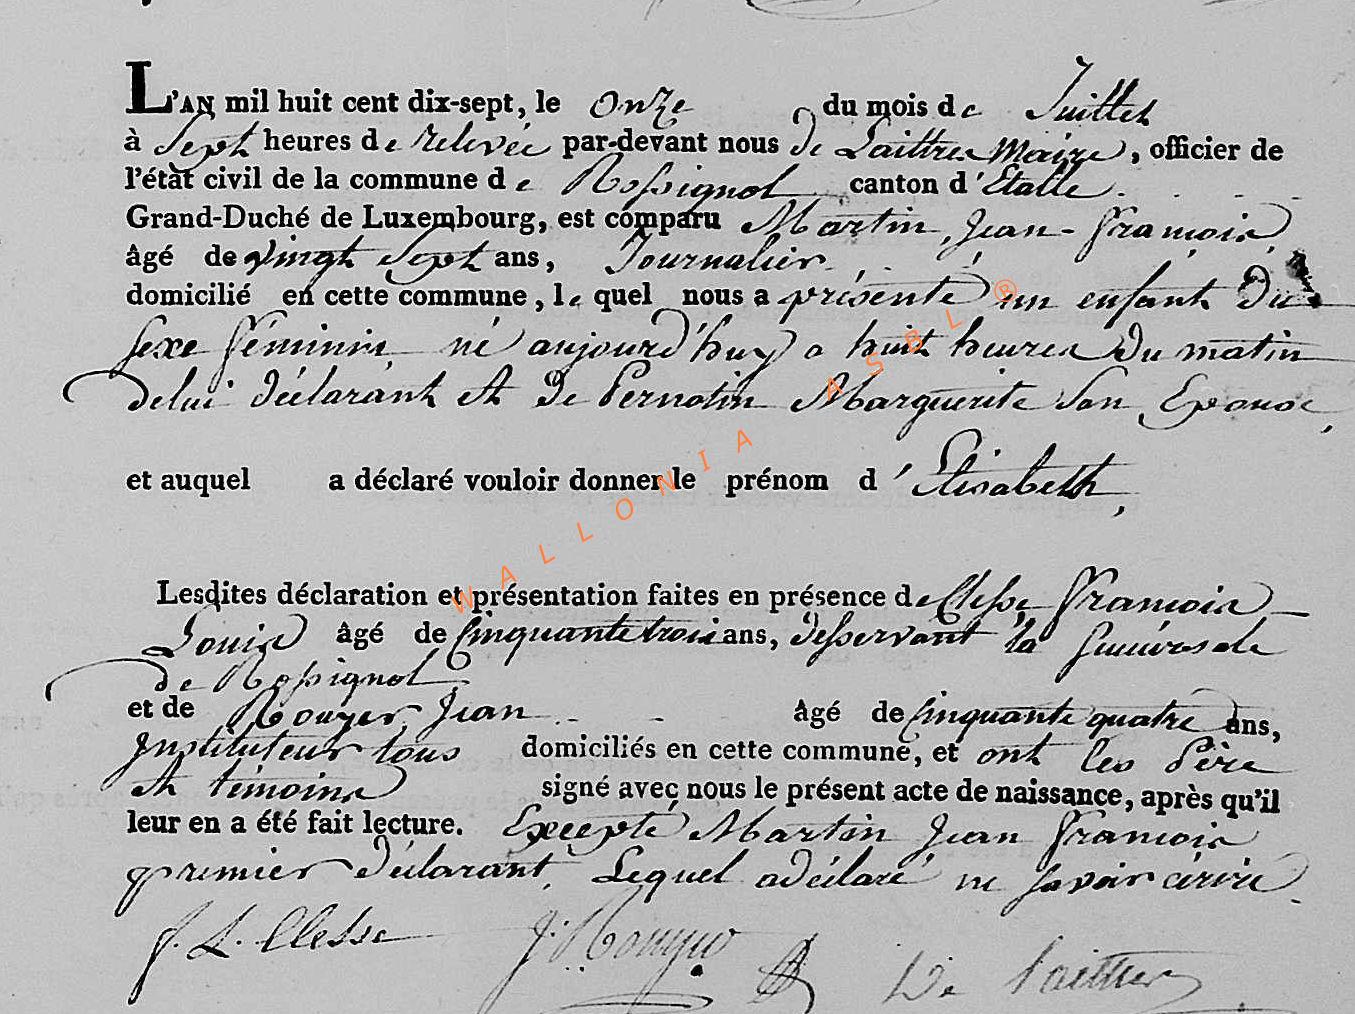 L'AN mil huit cent dix-sept, le onze du mois de Juillet
à Sept heures de relevée par-devant nous De Laittres Maire, officier de
l'état civil de la commune de Rossignol canton d'Etalle
Grand-Duché de Luxembourg, est comparu Martin, Jean-François,
âgé de vingt Sept ans, Journalier
domicilié en cette commune, le quel nous a présenté un enfant Du
sexe féminin né aujourd'huy a huit heures Du matin
De lui Déclarant et De Pernotin Marguerite Son Epouse,
et auquel a déclaré vouloir donner le prénom d'Elisabeth,
Lesdites déclaration et présentation faites en présence de Clesse François
Louis âgé de Cinquante trois ans, Desservant la Succursale
De Rossignol
et de Rouyer Jean âgé de Cinquante quatre ans,
Instituteur tous domiciliés en cette commune, et ont les Père
et témoins signé avec nous le présent acte de naissance, après qu'il
leur en a été fait lecture. Excepté Martin Jean François
premier Déclarant, Lequel a déclaré ne savoir écrire.
f. L. Clesse J: Rouyer De Laittres
WALLONIA ASBL ®